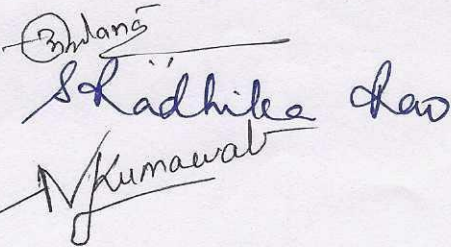 S Radhika Rao
N Kumawat